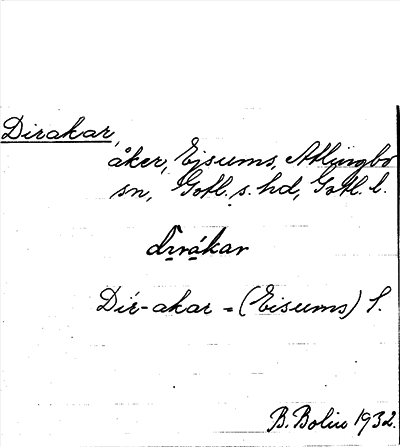 Dirakar,
åker, Ejsums, Atlingbo
sn, Gotl. s. hd, Gotl. l.
dirákar
Dír-akar = (Eisums) S.
B. Bolin 1932.